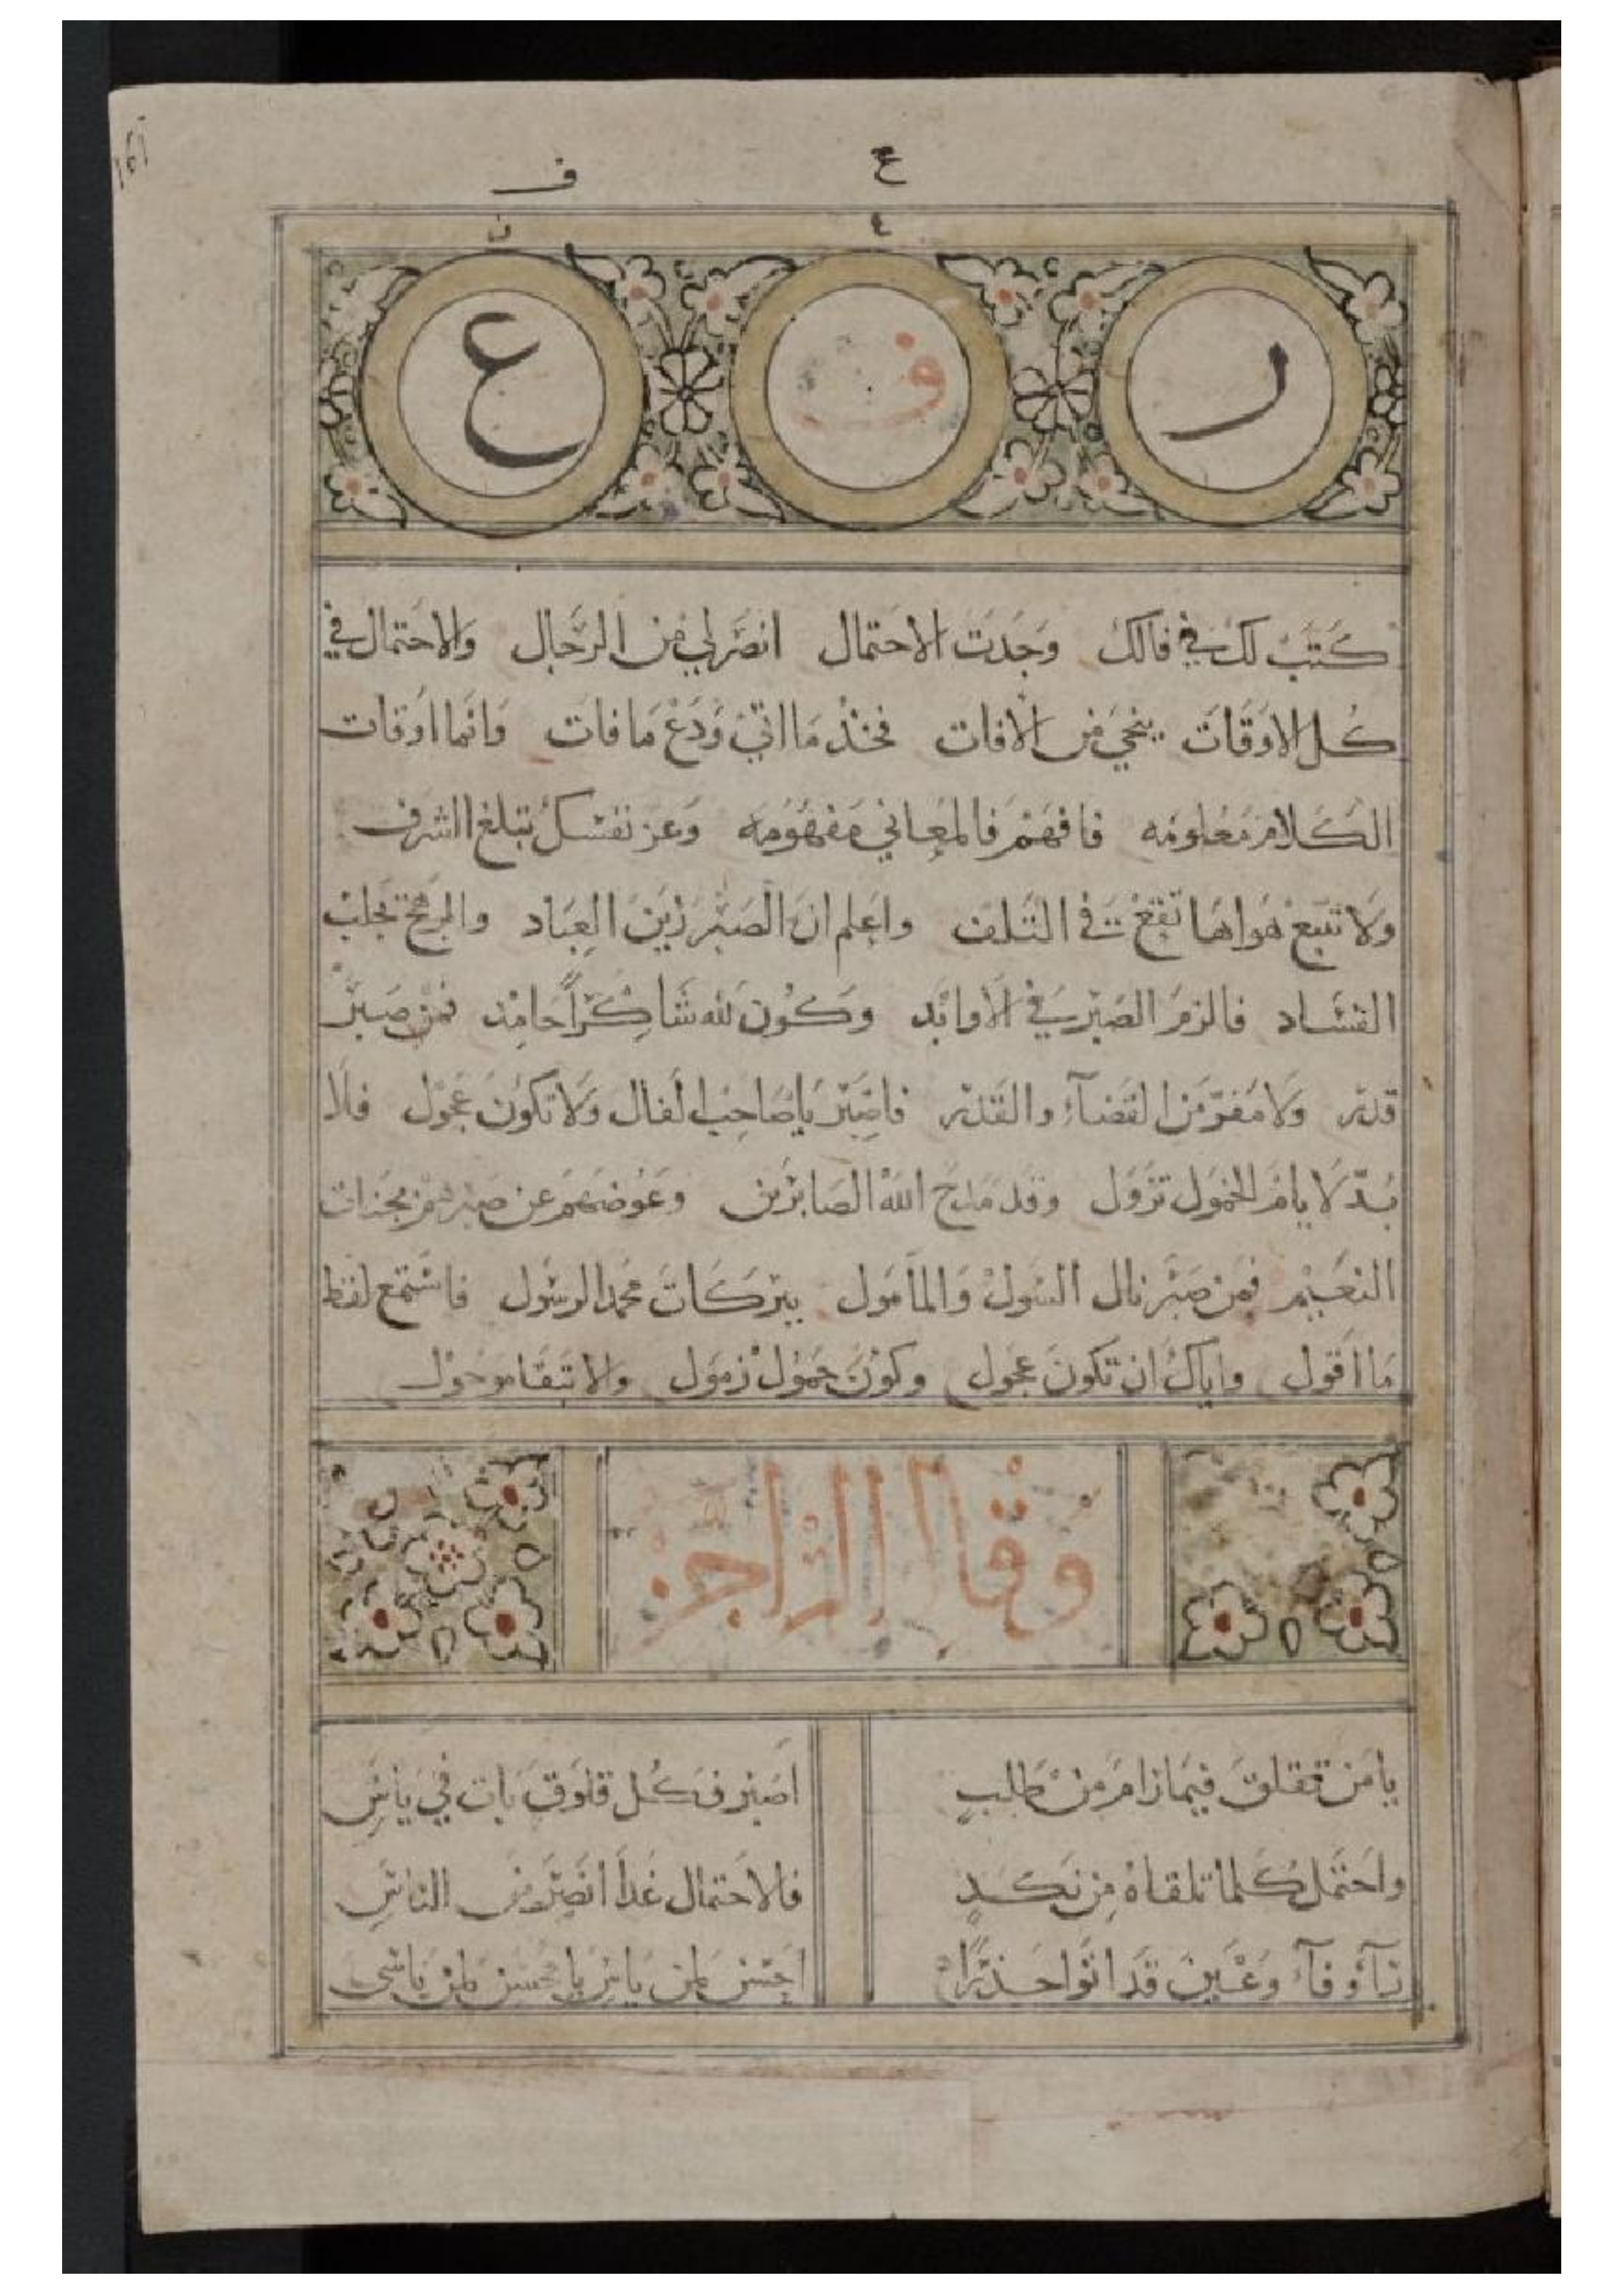 ع ف
ر ف ع
كتب لك في فالك وجدت الاحتمال انصر لي من الرجال والاحتمال في
كل الاوقات ينجي من الافات فخذ ما اتي ودع ما فات وانما اوقات
الكلام معلومه فافهم فالمعاني مفهومه وعز نفسك تبلغ الشرف
ولا تتبع هواها تقع في التلف واعلم ان الصبر زين العباد والـ تجلب
الفساد فالزم الصبر في الاوابد وكون لله شاكراً حامد فمن صبر
قدر ولا مفر من القضآء والقدر فاصبر يا صاحب الفال ولا تكون عجول فلا
بد لايام الخمول تزول وقد مدح الله الصابرين وعوضهم عن صبرهم بجنات
النعيم فمن صبر نال السول والمامول ببركات محمد الرسول فاستمع لفظ
ما اقول واياك ان تكون عجول وكون حمول زمول ولا تبقا
وقال الراجز
يا من تقلق فيما رام من طلب اصبر فكل قلوق بات في ياس
واحتمل كلما تلقاه من نكد فالاحتمال غدا انصر من الناس
رآ وفآ وعين قد اتوا حذراً احسن لمن